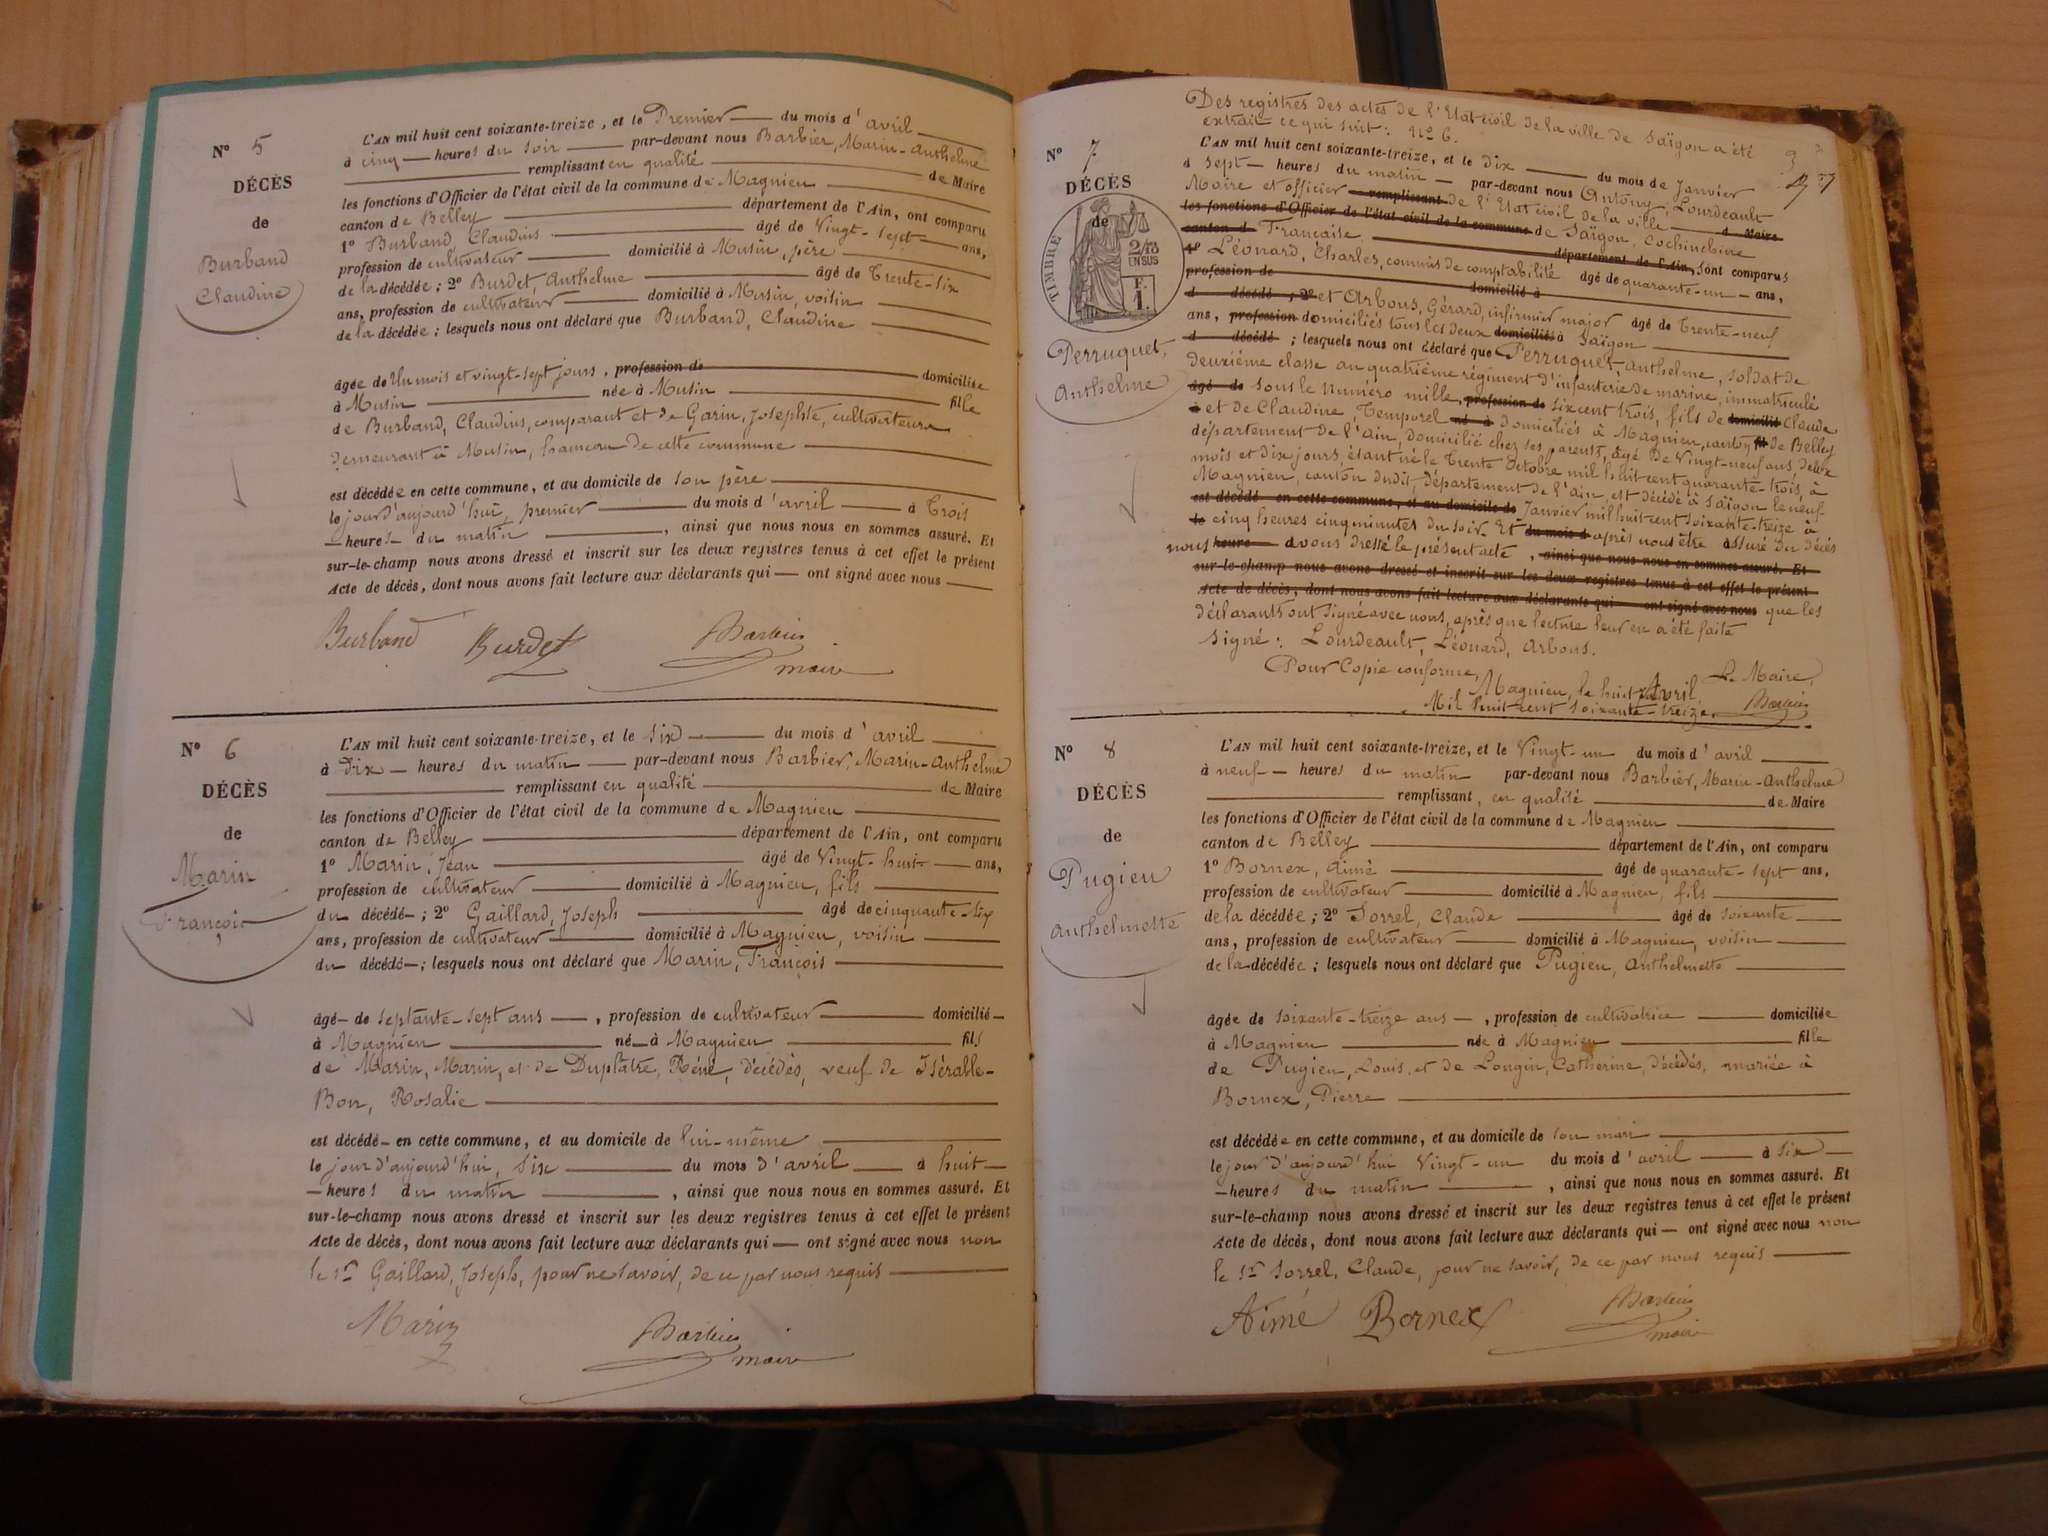 N° 5
DÉCÈS
de
Burband
Claudine
L'AN mil huit cent soixante-treize, et le Premier du mois d'avril
à cinq heures du soir par-devant nous Barbier, Marin-Anthelme
remplissant en qualité de Maire
les fonctions d'Officier de l'état civil de la commune de Magnieu
canton de Belley département de l'Ain, ont comparu
1° Burband, Claudius âgé de Vingt-sept ans,
profession de cultivateur domicilié à Musin, père
de la décédée ; 2° Burdet, Anthelme âgé de Trente-six
ans, profession de cultivateur domicilié à Musin, voisin
de la décédée ; lesquels nous ont déclaré que Burband, Claudine
âgée de Un mois et vingt-sept jours, profession de domiciliée
à Musin née à Musin fille
de Burband, Claudius, comparant et de Garin, Josephte, cultivateurs
demeurant à Musin, hameau de cette commune
est décédée en cette commune, et au domicile de son père
le jour d'aujourd'hui, premier du mois d'avril à Trois
heures du matin, ainsi que nous nous en sommes assuré. Et
sur-le-champ nous avons dressé et inscrit sur les deux registres tenus à cet effet le présent
Acte de décès, dont nous avons fait lecture aux déclarants qui ont signé avec nous
Burband Burdet Barbier
maire
N° 6
DÉCÈS
de
Marin
François
L'AN mil huit cent soixante-treize, et le six du mois d'avril
à Dix heures du matin par-devant nous Barbier, Marin-Anthelme
remplissant en qualité de Maire
les fonctions d'Officier de l'état civil de la commune de Magnieu
canton de Belley département de l'Ain, ont comparu
1° Marin, Jean âgé de Vingt-huit ans,
profession de cultivateur domicilié à Magnieu, fils
du décédé ; 2° Gaillard, Joseph âgé de cinquante-six
ans, profession de cultivateur domicilié à Magnieu, voisin
du décédé ; lesquels nous ont déclaré que Marin, François
âgé de septante-sept ans, profession de cultivateur domicilié
à Magnieu né à Magnieu fils
de Marin, Marin, et de Duplâtre, Réné, décédés, veuf de Isérable-
Bon, Rosalie
est décédé en cette commune, et au domicile de lui-même
le jour d'aujourd'hui, six du mois d'avril à huit
heures du matin, ainsi que nous nous en sommes assuré. Et
sur-le-champ nous avons dressé et inscrit sur les deux registres tenus à cet effet le présent
Acte de décès, dont nous avons fait lecture aux déclarants qui ont signé avec nous non
le sr Gaillard, Joseph, pour ne savoir, de ce par nous requis
Marin Barbier
maire
Des registres des actes de l'Etat civil de la ville de Saïgon a été
extrait ce qui suit : N° 6.
N° 7
DÉCÈS
de
TIMBRE
2/10
EN SUS
F.
1.
Perruquet,
Anthelme
L'AN mil huit cent soixante-treize, et le dix du mois de Janvier
à sept heures du matin par-devant nous Antony, Lourdeault
Maire et officier remplissant de l'Etat civil de la ville
les fonctions d'Officier de l'état civil de la commune de Saïgon, Cochinchine
canton d Française département de l'Ain, sont comparus
1° Léonard, Charles, commis de comptabilité âgé de quarante-un ans,
profession de domicilié à
d décédé ; 2° et Arbous, Gérard, infirmier major âgé de Trente-neuf
ans, profession domiciliés tous les deux domicilié à Saïgon
d décédé ; lesquels nous ont déclaré que Perruquet, Anthelme, soldat de
deuxième classe au quatrième régiment d'infanterie de marine, immatriculé
âgé de sous le numéro mille, profession de six cent trois, fils de domicilié Claude
et de Claudine Temporel né à domiciliés à Magnieu, canton fil de Belley
département de l'Ain, domicilié chez ses parents, âgé de Vingt-neuf ans, deux
mois et dix jours, étant né le Trente Octobre mil huit cent quarante-trois, à
Magnieu, canton dudit, département de l'Ain, est décédé à Saïgon le neuf
est décédé en cette commune, et au domicile de Janvier mil huit cent soixante-treize à
le cinq heures cinq minutes du soir. Et du mois d après nous être assuré du décès
nous heure avons dressé le présent acte, ainsi que nous nous en sommes assuré. Et
sur-le-champ nous avons dressé et inscrit sur les deux registres tenus à cet effet le présent
Acte de décès, dont nous avons fait lecture aux déclarants qui ont signé avec nous que les
déclarants ont signé avec nous, après que lecture leur en a été faite
Signé : Lourdeault, Léonard, Arbous.
Pour Copie conforme,
Magnieu, le huit Avril, Le Maire,
Mil huit cent soixante-treize. Barbier
N° 8
DÉCÈS
de
Pugieu
Anthelmette
L'AN mil huit cent soixante-treize, et le Vingt-un du mois d'avril
à neuf heures du matin par-devant nous Barbier, Marin-Anthelme
remplissant, en qualité de Maire
les fonctions d'Officier de l'état civil de la commune de Magnieu
canton de Belley département de l'Ain, ont comparu
1° Bornex, Aimé âgé de quarante-sept ans,
profession de cultivateur domicilié à Magnieu, fils
de la décédée ; 2° Sorrel, Claude âgé de soixante
ans, profession de cultivateur domicilié à Magnieu, voisin
de la décédée ; lesquels nous ont déclaré que Pugieu, Anthelmette
âgée de soixante-treize ans, profession de cultivatrice domiciliée
à Magnieu née à Magnieu fille
de Pugieu, Louis, et de Longin, Catherine, décédés, mariée à
Bornex, Pierre
est décédée en cette commune, et au domicile de son mari
le jour d'aujourd'hui Vingt-un du mois d'avril à six
heures du matin, ainsi que nous nous en sommes assuré. Et
sur-le-champ nous avons dressé et inscrit sur les deux registres tenus à cet effet le présent
Acte de décès, dont nous avons fait lecture aux déclarants qui ont signé avec nous non
le sr Sorrel, Claude, pour ne savoir, de ce par nous requis
Aimé Bornex Barbier
maire